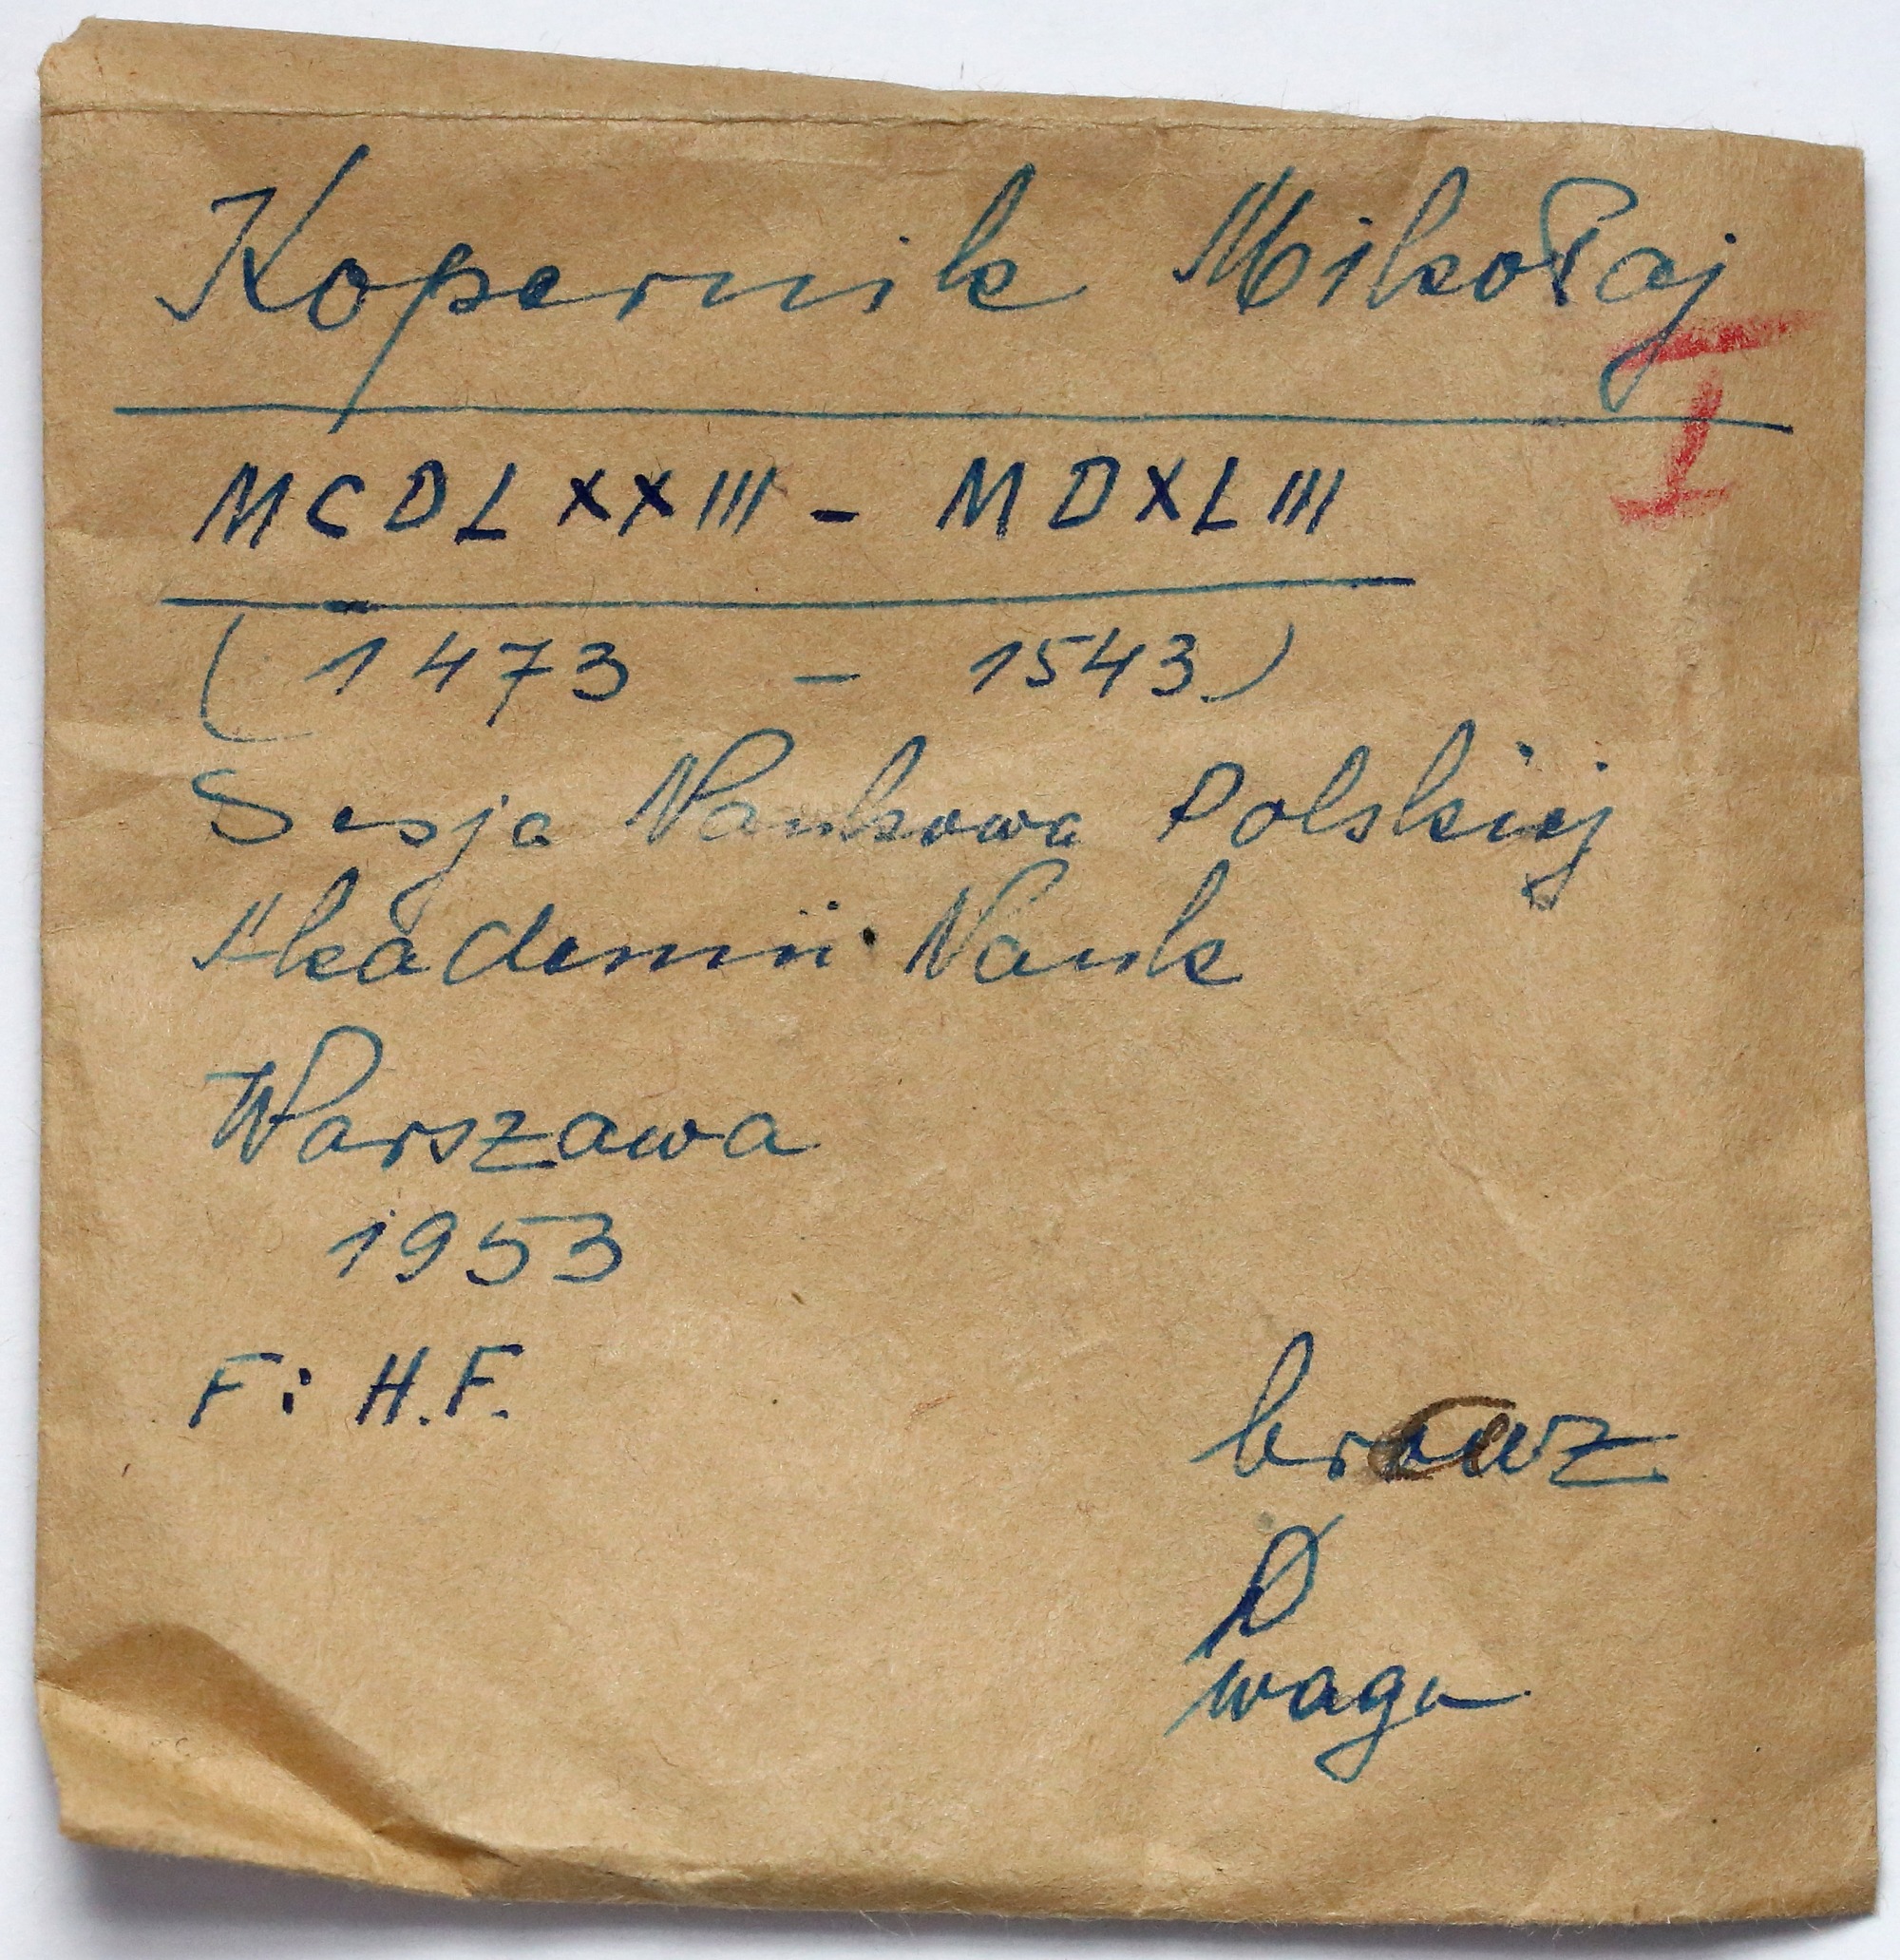 Kopernik Mikołaj
I
MCDLXXIII - MDXLIII
(1473 - 1543)
Sesja Naukowa Polskiej
Akademii Nauk
Warszawa
1953
F: H.F.
brąz
waga